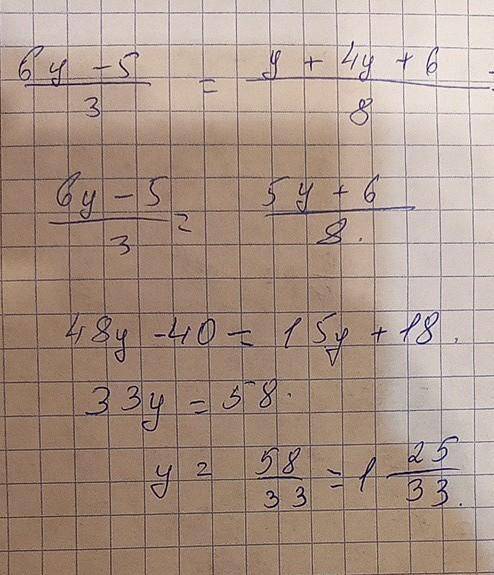 6y - 5 / 3 = y + 4y + 6 / 8
6y - 5 / 3 = 5y + 6 / 8.
48y - 40 = 15y + 18.
33y = 58.
y = 58/33 = 1 25/33.